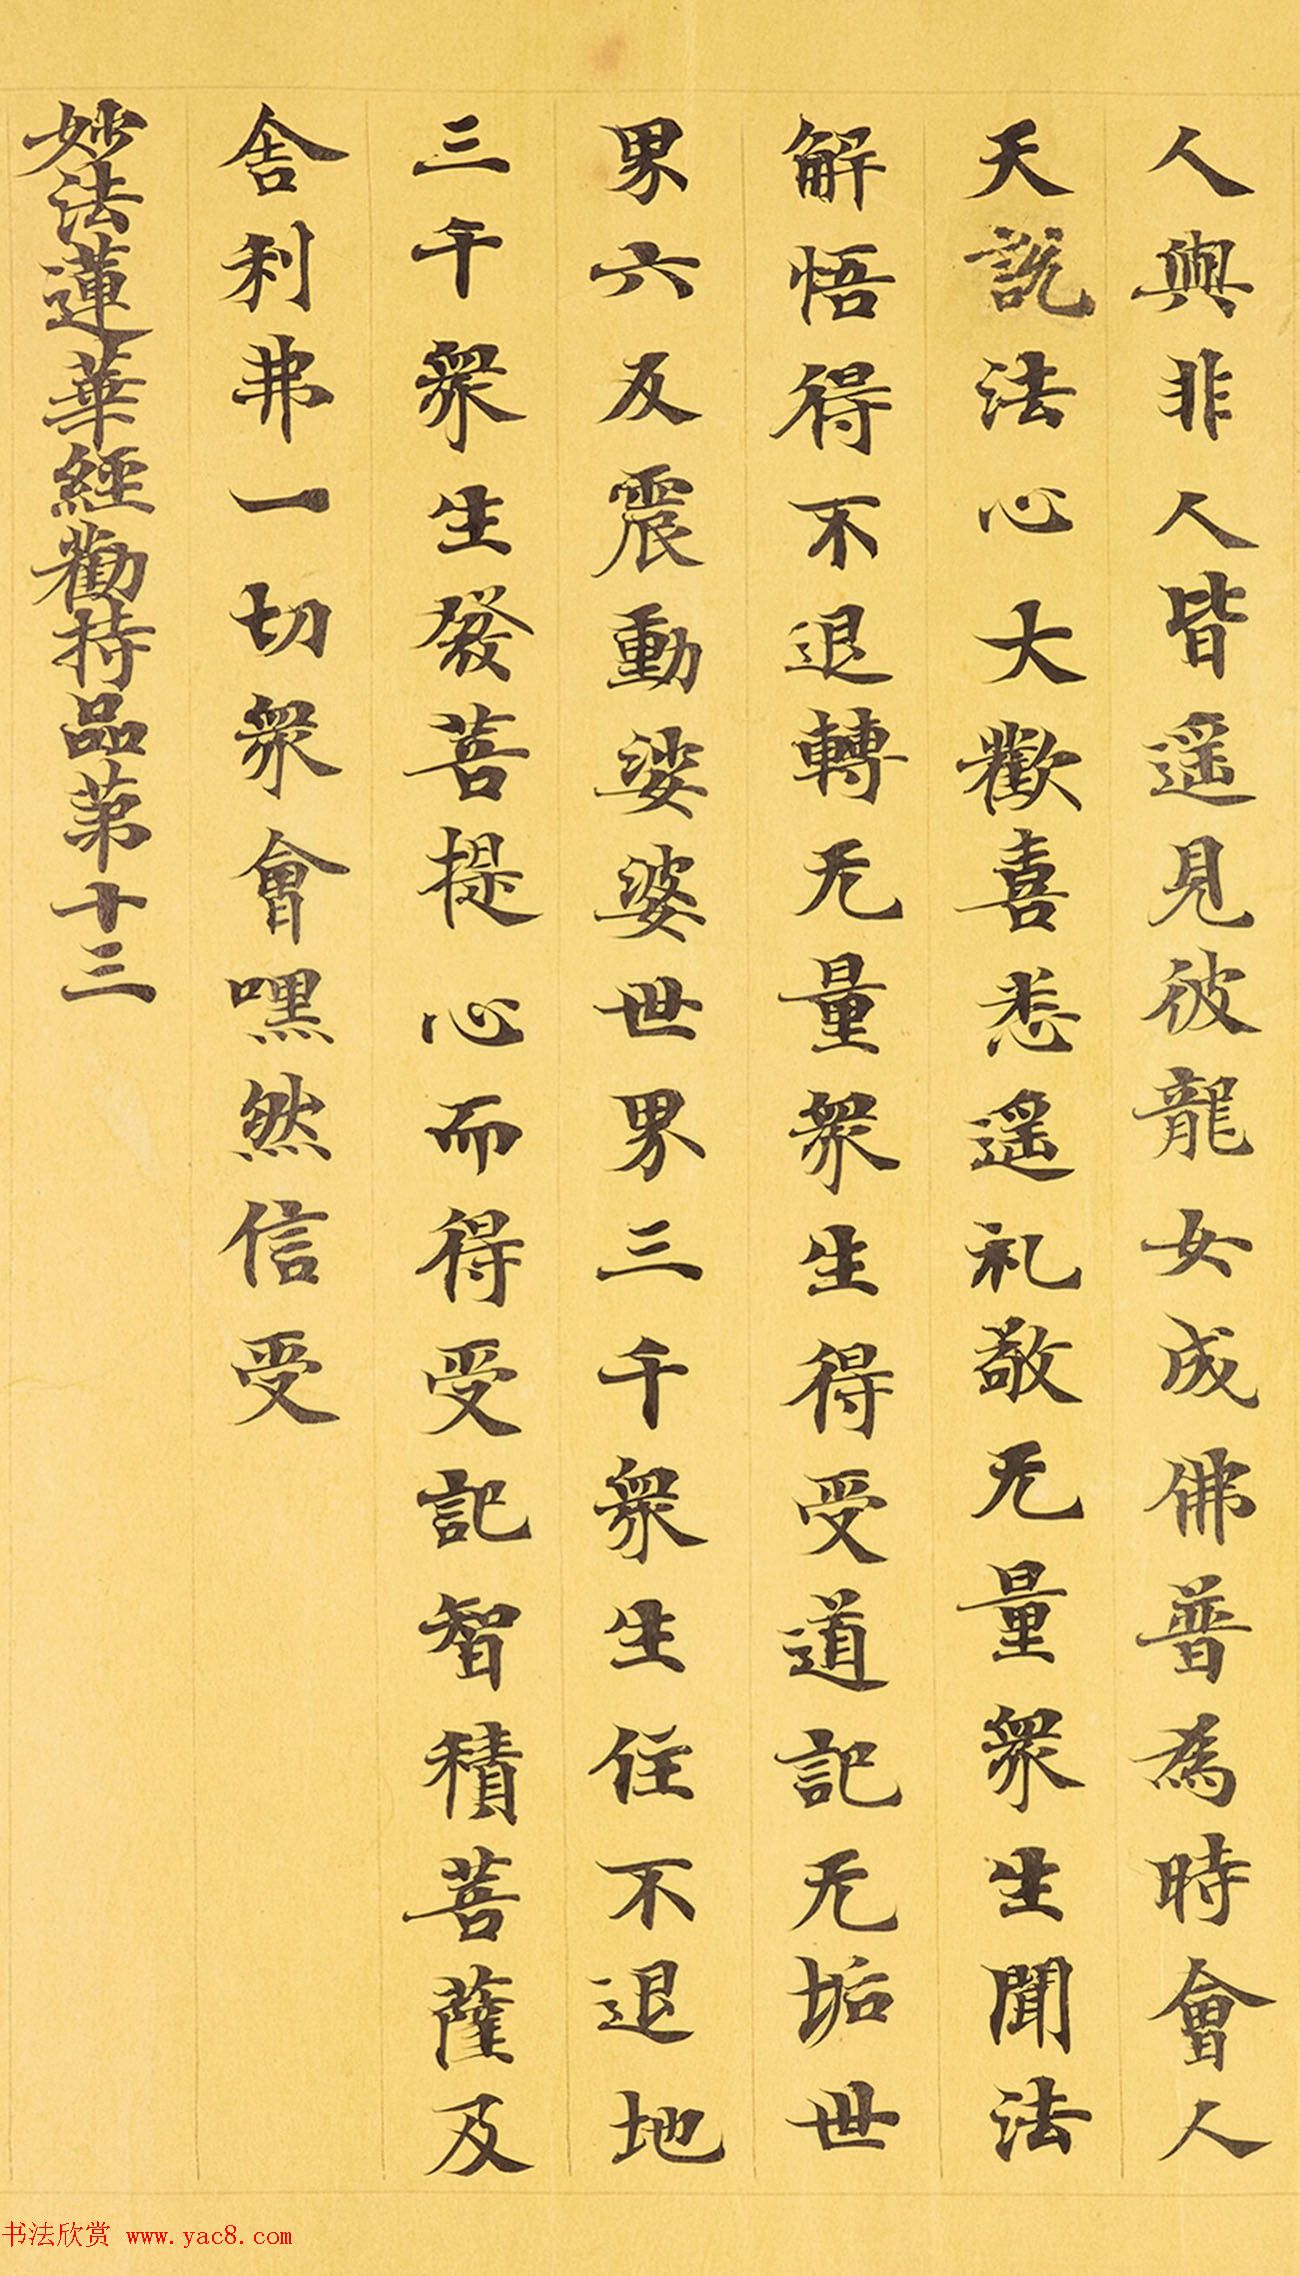 人與非人皆遥見彼龍女成佛普為時會人
天説法心大歡喜悉遥礼敬无量衆生聞法
解悟得不退轉无量衆生得受道記无垢世
界六反震動娑婆世界三千衆生住不退地
三千衆生發菩提心而得受記智積菩薩及
舍利弗一切衆會嘿然信受
妙法蓮華經勸持品第十三
书法欣赏 www.yac8.com